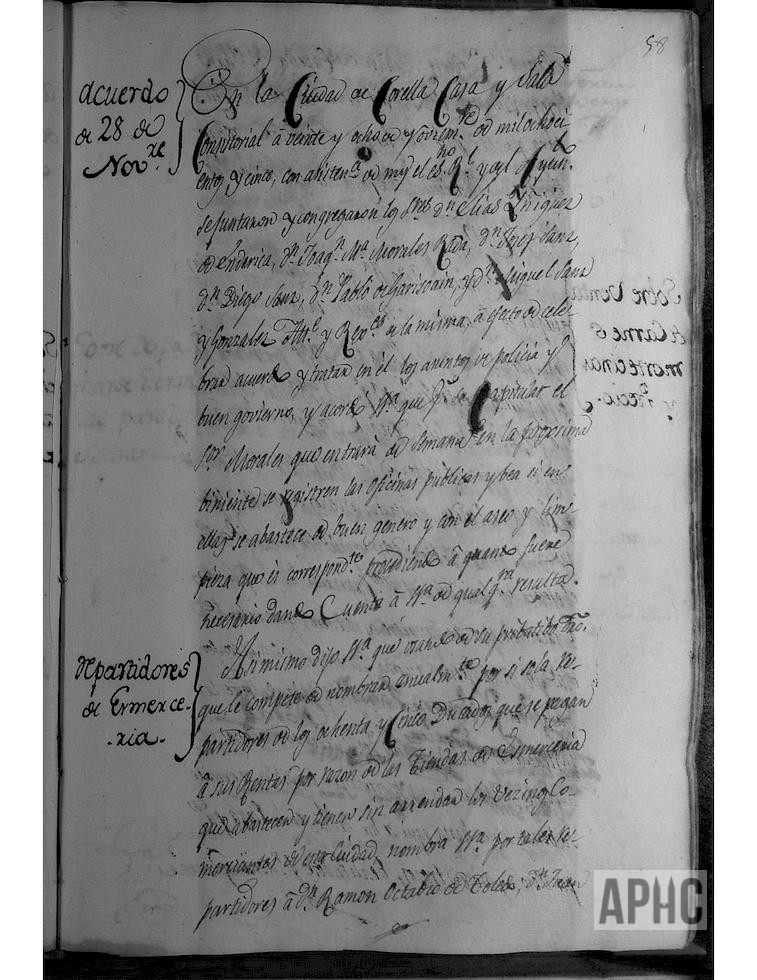 58
acuerdo
de 28 de
Nov.re
En la Ciudad de Corella Casa y Sala
Consistorial â veinte y ocho de Noviem.re de mil ochoci
entos y cinco, con asisten.a de my el es.no R.l y del Ayun.to
se juntaron y congregaron los S.res d.n Elias Iñiguez
de Enderica, d.n Joaq.n M.a Morales Rada, d.n Josef Sanz,
d.n Diego Sanz, d.n Pablo de Garisoain, y d.n Miguel Sanz
y Gonzalez Alc.e y Rex.es de la misma, â efecto de cele
brar acuerdo y tratar en él los asuntos de policia y
buen govierno, y acordó S.ria que p.r de Capitular el
Sor. Morales que entrará de Semana en la proxima
biniente se registren las oficinas publicas y bea si en
ellas se abastece de buen genero y con el aseo y lim-
pieza que es correspond.te procediendo â quanto fuere
necesario dando Cuenta â S.ria de qual q.ra resulta.
Repartidores
de Ermerce-
-ria.
Asimismo dijo S.ria que usando de su probatido dro.
que le compete de nombrar anualm.te por si sola, Re-
partidores de los ochenta y Cinco Ducados que se pagan
â sus Rentas por razon de las Tiendas de Esmerceria
que abastecen y tienen sin arrendar los Vezinos Co-
merciantes de esta Ciudad, nombra S.ria por tales Re-
partidores â d.n Ramon Octabio de Toledo, d.n Juan
Sobre Venta
de Carnes
mortecinas
y Precio.
APHC